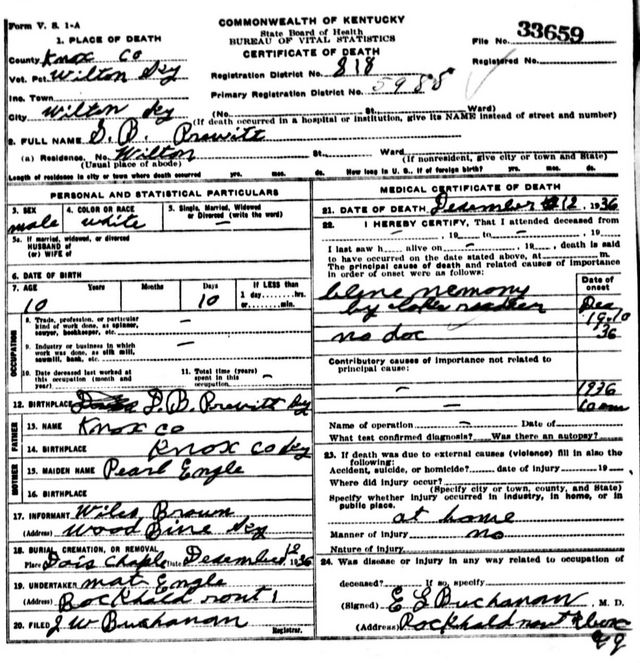 Form V. S. 1-A
COMMONWEALTH OF KENTUCKY
State Board of Health
BUREAU OF VITAL STATISTICS
CERTIFICATE OF DEATH
File No. 33659
Registered No.
1. PLACE OF DEATH
County Knox Co
Vot. Pct. Wilton Ky
Inc. Town
City Wilton Ky
Registration District No. 818
Primary Registration District No. 5988
(No. St. Ward)
(If death occurred in a hospital or institution, give its NAME instead of street and number)
2. FULL NAME S. B. Prewitt
(a) Residence. No. Wilton St. Ward
(Usual place of abode) (If nonresident, give city or town and State)
Length of residence in city or town where death occurred yrs. mos. ds. How long in U. S., if of foreign birth? yrs. mos. ds.
PERSONAL AND STATISTICAL PARTICULARS
3. SEX male
4. COLOR OR RACE white
5. Single, Married, Widowed or Divorced (write the word) –
5a. If married, widowed, or divorced
HUSBAND of
(or) WIFE of
6. DATE OF BIRTH
7. AGE Years Months Days If LESS than
1 day,....hrs.
or......min.
10 10
OCCUPATION
8. Trade, profession, or particular
kind of work done, as spinner,
sawyer, bookkeeper, etc. –
9. Industry or business in which
work was done, as silk mill,
sawmill, bank, etc. –
10. Date deceased last worked at
this occupation (month and
year)
11. Total time (years)
spent in this
occupation –
12. BIRTHPLACE D. B. Prewitt Ky
FATHER
13. NAME Knox Co
14. BIRTHPLACE Knox Co Ky
MOTHER
15. MAIDEN NAME Pearl Engle
16. BIRTHPLACE
17. INFORMANT Wiles Brown
(Address) Wood Bine Ky
18. BURIAL, CREMATION, OR REMOVAL
Place Dais Chaple Date Desember 12, 1936
19. UNDERTAKER mat Engle
(Address) Rockhald rout 1
20. FILED J W Buchanan
Registrar.
MEDICAL CERTIFICATE OF DEATH
21. DATE OF DEATH Desember 12, 1936
22. I HEREBY CERTIFY, That I attended deceased from
–, 19 to –, 19
I last saw h alive on –, 19, death is said
to have occurred on the date stated above, at m.
The principal cause of death and related causes of importance
in order of onset were as follows:
Date of
onset
nemony Dec
by 1910
no doc 36
Contributory causes of importance not related to
principal cause:
– 1936
–
Name of operation – Date of
What test confirmed diagnosis? Was there an autopsy?
23. If death was due to external causes (violence) fill in also the
following:
Accident, suicide, or homicide? date of injury 19
Where did injury occur?
(Specify city or town, county, and State)
Specify whether injury occurred in industry, in home, or in
public place.
at home
Manner of injury no
Nature of injury
24. Was disease or injury in any way related to occupation of
deceased? If so, specify
(Signed) E S Buchanan, M. D.
(Address) Rockhald rout 1 box